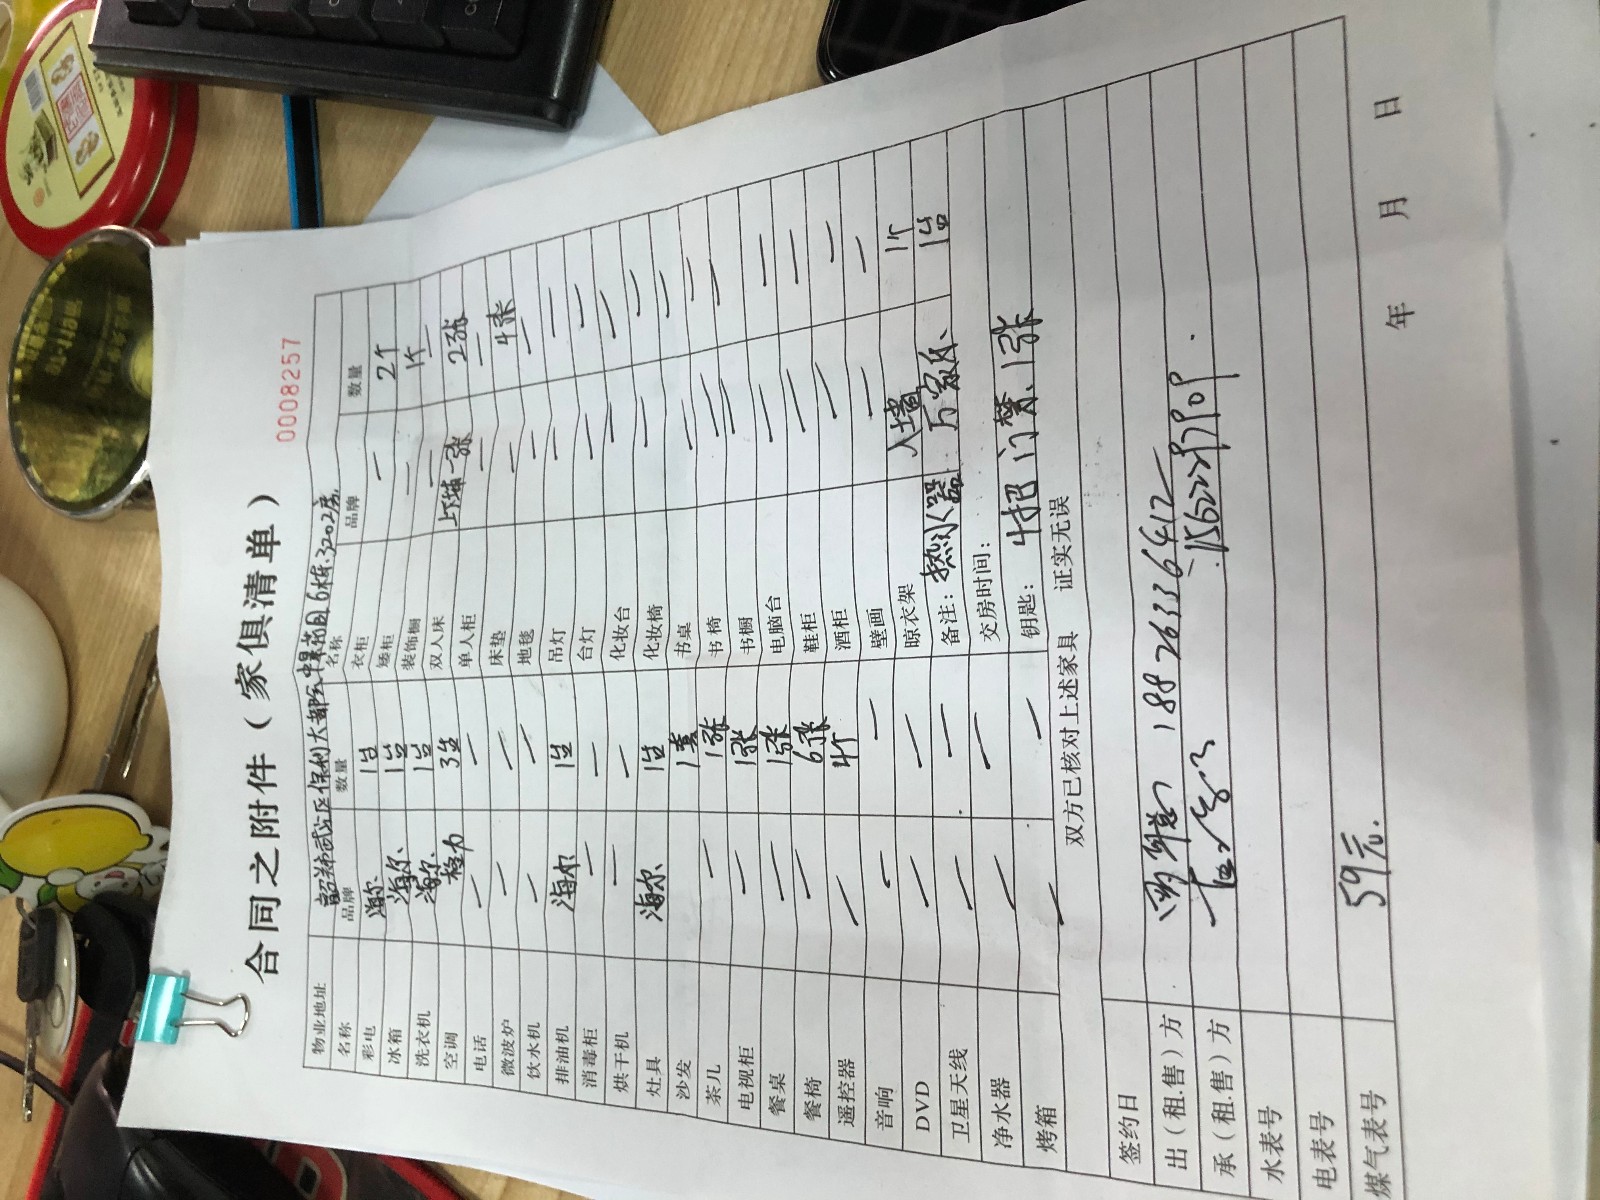 合同之附件（家俱清单）
0008257
物业地址 韶关市武江区保利大都会 6栋.3202房
名称 品牌 数量 名称 品牌 数量
彩电 海尔 1台 衣柜 — 2个
冰箱 海尔 1台 矮柜 — 1个
洗衣机 海尔 1台 装饰橱 — —
空调 格力 3台 双人床 上下铺一张 2张
电话 — — 单人柜 — —
微波炉 — — 床垫 — 4张
饮水机 — — 地毯 — —
排油机 海尔 1台 吊灯 — —
消毒柜 — — 台灯 — —
烘干机 — — 化妆台 — —
灶具 海尔 1台 化妆椅 — —
沙发 1套 书桌 — —
茶几 — 1张 书椅 — —
电视柜 — 1张 书橱 — —
餐桌 — 1张 电脑台 — —
餐椅 — 6张 鞋柜 — —
遥控器 — 4个 酒柜 — —
音响 — — 壁画 — —
DVD — — 晾衣架 入墙 1个
卫星天线 — — 备注：热水器 万家乐 1台
净水器 — — 交房时间：
烤箱 — — 钥匙：4把 门禁.1张
双方已核对上述家具 证实无误
签约日
出（租.售）方 18826336412
承（租.售）方
水表号
电表号
煤气表号 59元.
年 月 日